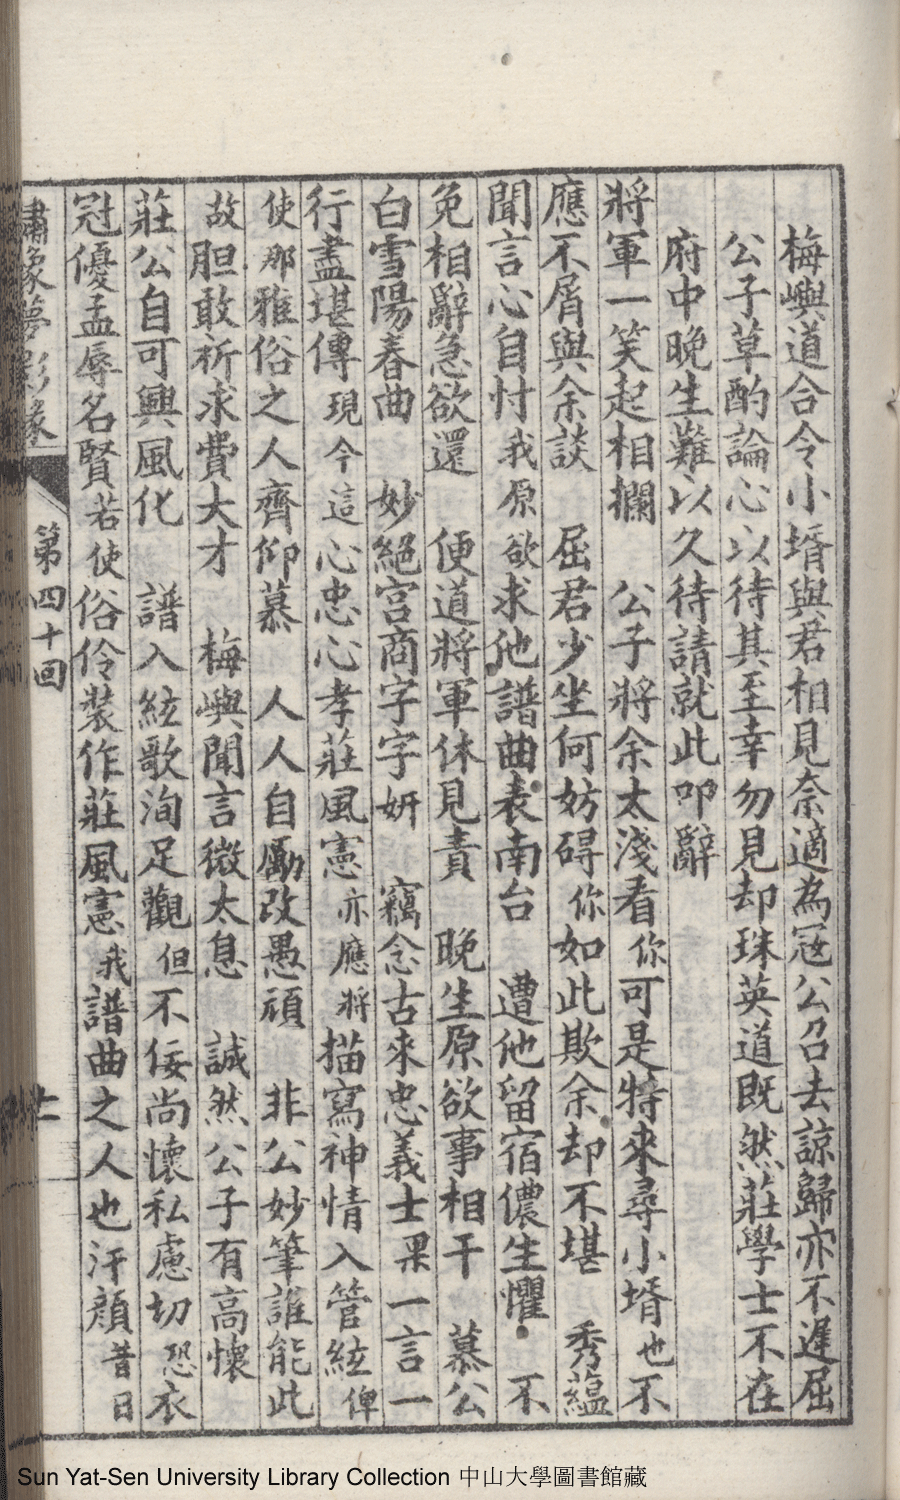 梅嶼道合令小壻與君相見奈適為寇公召去諒歸亦不遲屈
公子草酌論心以待其至幸勿見却珠英道既然莊學士不在
府中晚生難以久待請就此叩辭
將軍一笑起相攔　公子將余太淺看你可是特來尋小壻也不
應不屑與余談　屈君少坐何妨碍你如此欺余却不堪　秀蘊
聞言心自忖我原欲求他譜曲表南台　遭他留宿儂生懼　不
免相辭急欲還　便道將軍休見責　晚生原欲事相干　慕公
白雪陽春曲　妙絕宮商字字妍　竊念古來忠義士果一言一
行盡堪傳現今這心忠心孝莊風憲亦應將描寫神情入管絃俾
使那雅俗之人齊仰慕　人人自勵改愚頑　非公妙筆誰能此
故胆敢祈求費大才　梅嶼聞言微太息　誠然公子有高懷
莊公自可興風化　譜入絃歌洵足觀但不佞尚懷私慮切恐衣
冠優孟辱名賢若使俗伶裝作莊風憲我譜曲之人也汗顏昔日
繡像夢影緣
第四十回
上
Sun Yat-Sen University Library Collection 中山大學圖書館藏